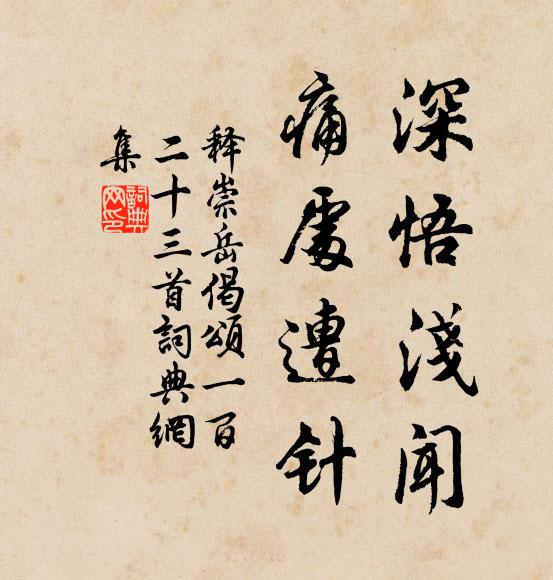 深悟浅闻
痛处遭针
释崇岳偈颂一百
二十三首詞典網
集
詞典網印